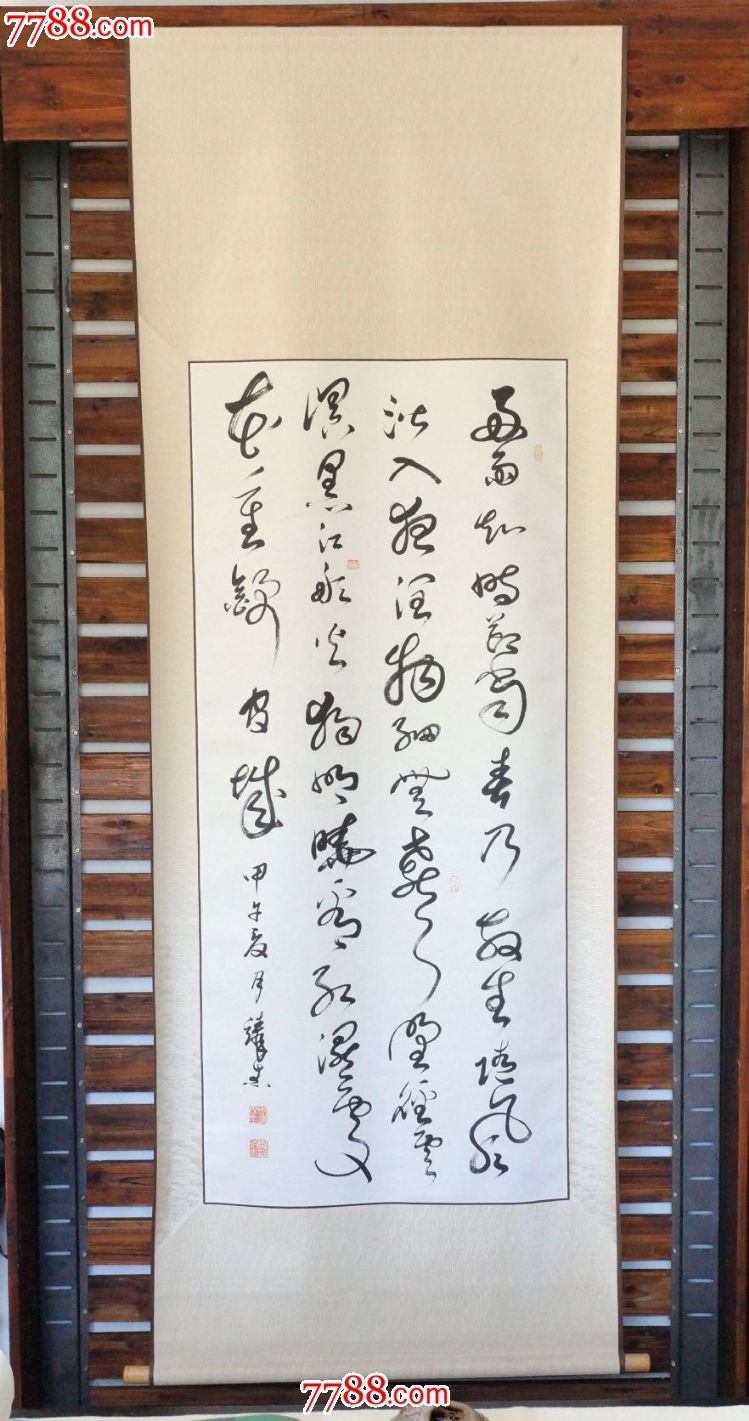 7788.com 7788.com
好雨知時節當春乃發生隨風
潛入夜潤物細無聲野徑雲
俱黑江船火獨明曉看紅濕處
花重錦官城
甲午夏月
7788.com